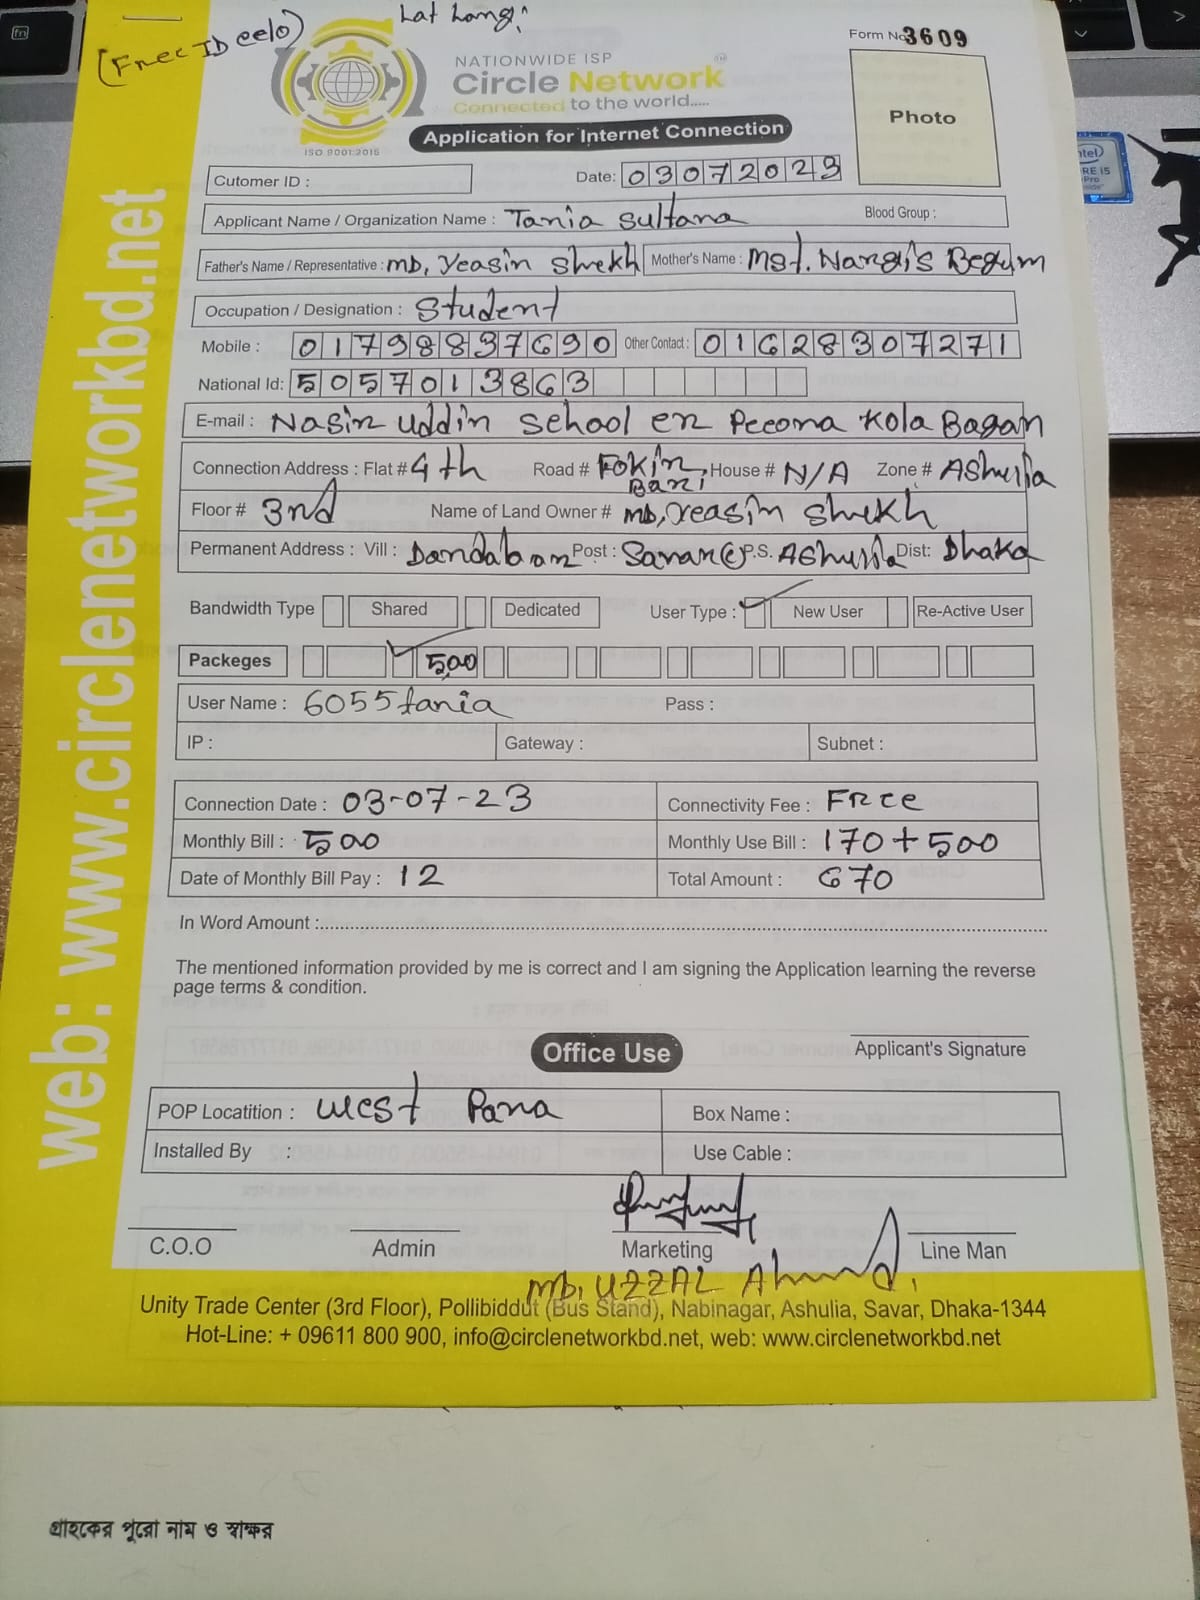 Lat Long:
(Free ID
Form No 3609
NATIONWIDE ISP
Circle Network
Connected to the world.....
ISO 9001:2015
Application for Internet Connection
Photo
Cutomer ID :
Date: 03072023
Applicant Name / Organization Name : Tania Sultana Blood Group :
Father's Name / Representative : MD, Yeasin Shekh Mother's Name : Mst. Nargis Begum
Occupation / Designation : Student
Mobile : 01798837690 Other Contact : 01628307271
National Id: 5057013863
E-mail : Nasir Uddin School er Kola Bagan
Connection Address : Flat # 4th Road # Fokir Bari House # N/A Zone # Ashulia
Floor # 3rd Name of Land Owner # MD, Yeasin Shekh
Permanent Address : Vill : Post : Savar P.S. Ashulia Dist: Dhaka
Bandwidth Type Shared Dedicated User Type : New User Re-Active User
Packeges 500
User Name : 6055tania Pass :
IP : Gateway : Subnet :
Connection Date : 03-07-23 Connectivity Fee : Free
Monthly Bill : 500 Monthly Use Bill : 170 + 500
Date of Monthly Bill Pay : 12 Total Amount : 670
In Word Amount :
The mentioned information provided by me is correct and I am signing the Application learning the reverse
page terms & condition.
Applicant's Signature
Office Use
POP Locatition : West Para Box Name :
Installed By : Use Cable :
C.O.O Admin Marketing Line Man
MD, UZZAL Ahmed
Unity Trade Center (3rd Floor), Pollibiddut (Bus Stand), Nabinagar, Ashulia, Savar, Dhaka-1344
Hot-Line: + 09611 800 900, info@circlenetworkbd.net, web: www.circlenetworkbd.net
web: www.circlenetworkbd.net
গ্রাহকের পুরো নাম ও স্বাক্ষর